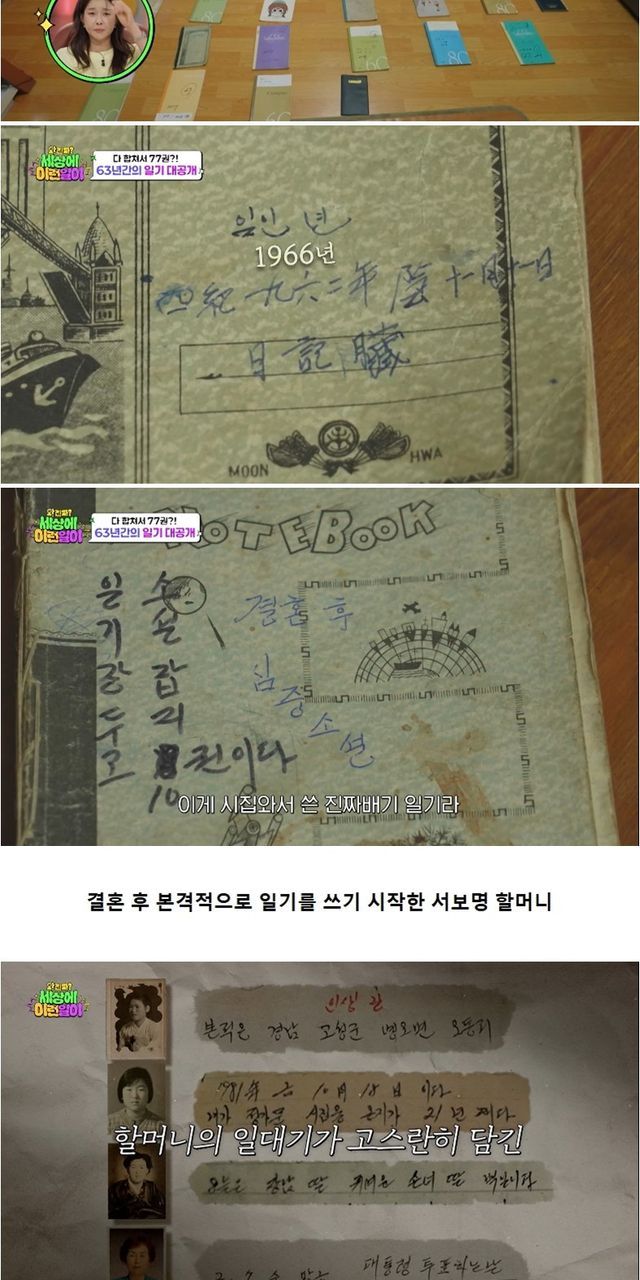 8C
8C
6C
와 진짜?
세상에
이런일이
다 합쳐서 77권?!
63년간의 일기 대공개
임인 년
1966년
西紀 一九六二年 陰 十一月 十一日
日記
MOON HWA
와 진짜?
세상에
이런일이
다 합쳐서 77권?!
63년간의 일기 대공개
NOTEBOOK
일기장
소설
결혼 후
심중소션
권이다
10
이게 시집와서 쓴 진짜배기 일기라
결혼 후 본격적으로 일기를 쓰기 시작한 서보명 할머니
와 진짜?
세상에
이런일이
인생관
본적은 경남 고성군
1981年 음 10月 18日 이다
내가 21년 째다
할머니의 일대기가 고스란히 담긴
오늘은 장남 딸 귀여운 손녀 딸 백일이다
대통령 투표하는날